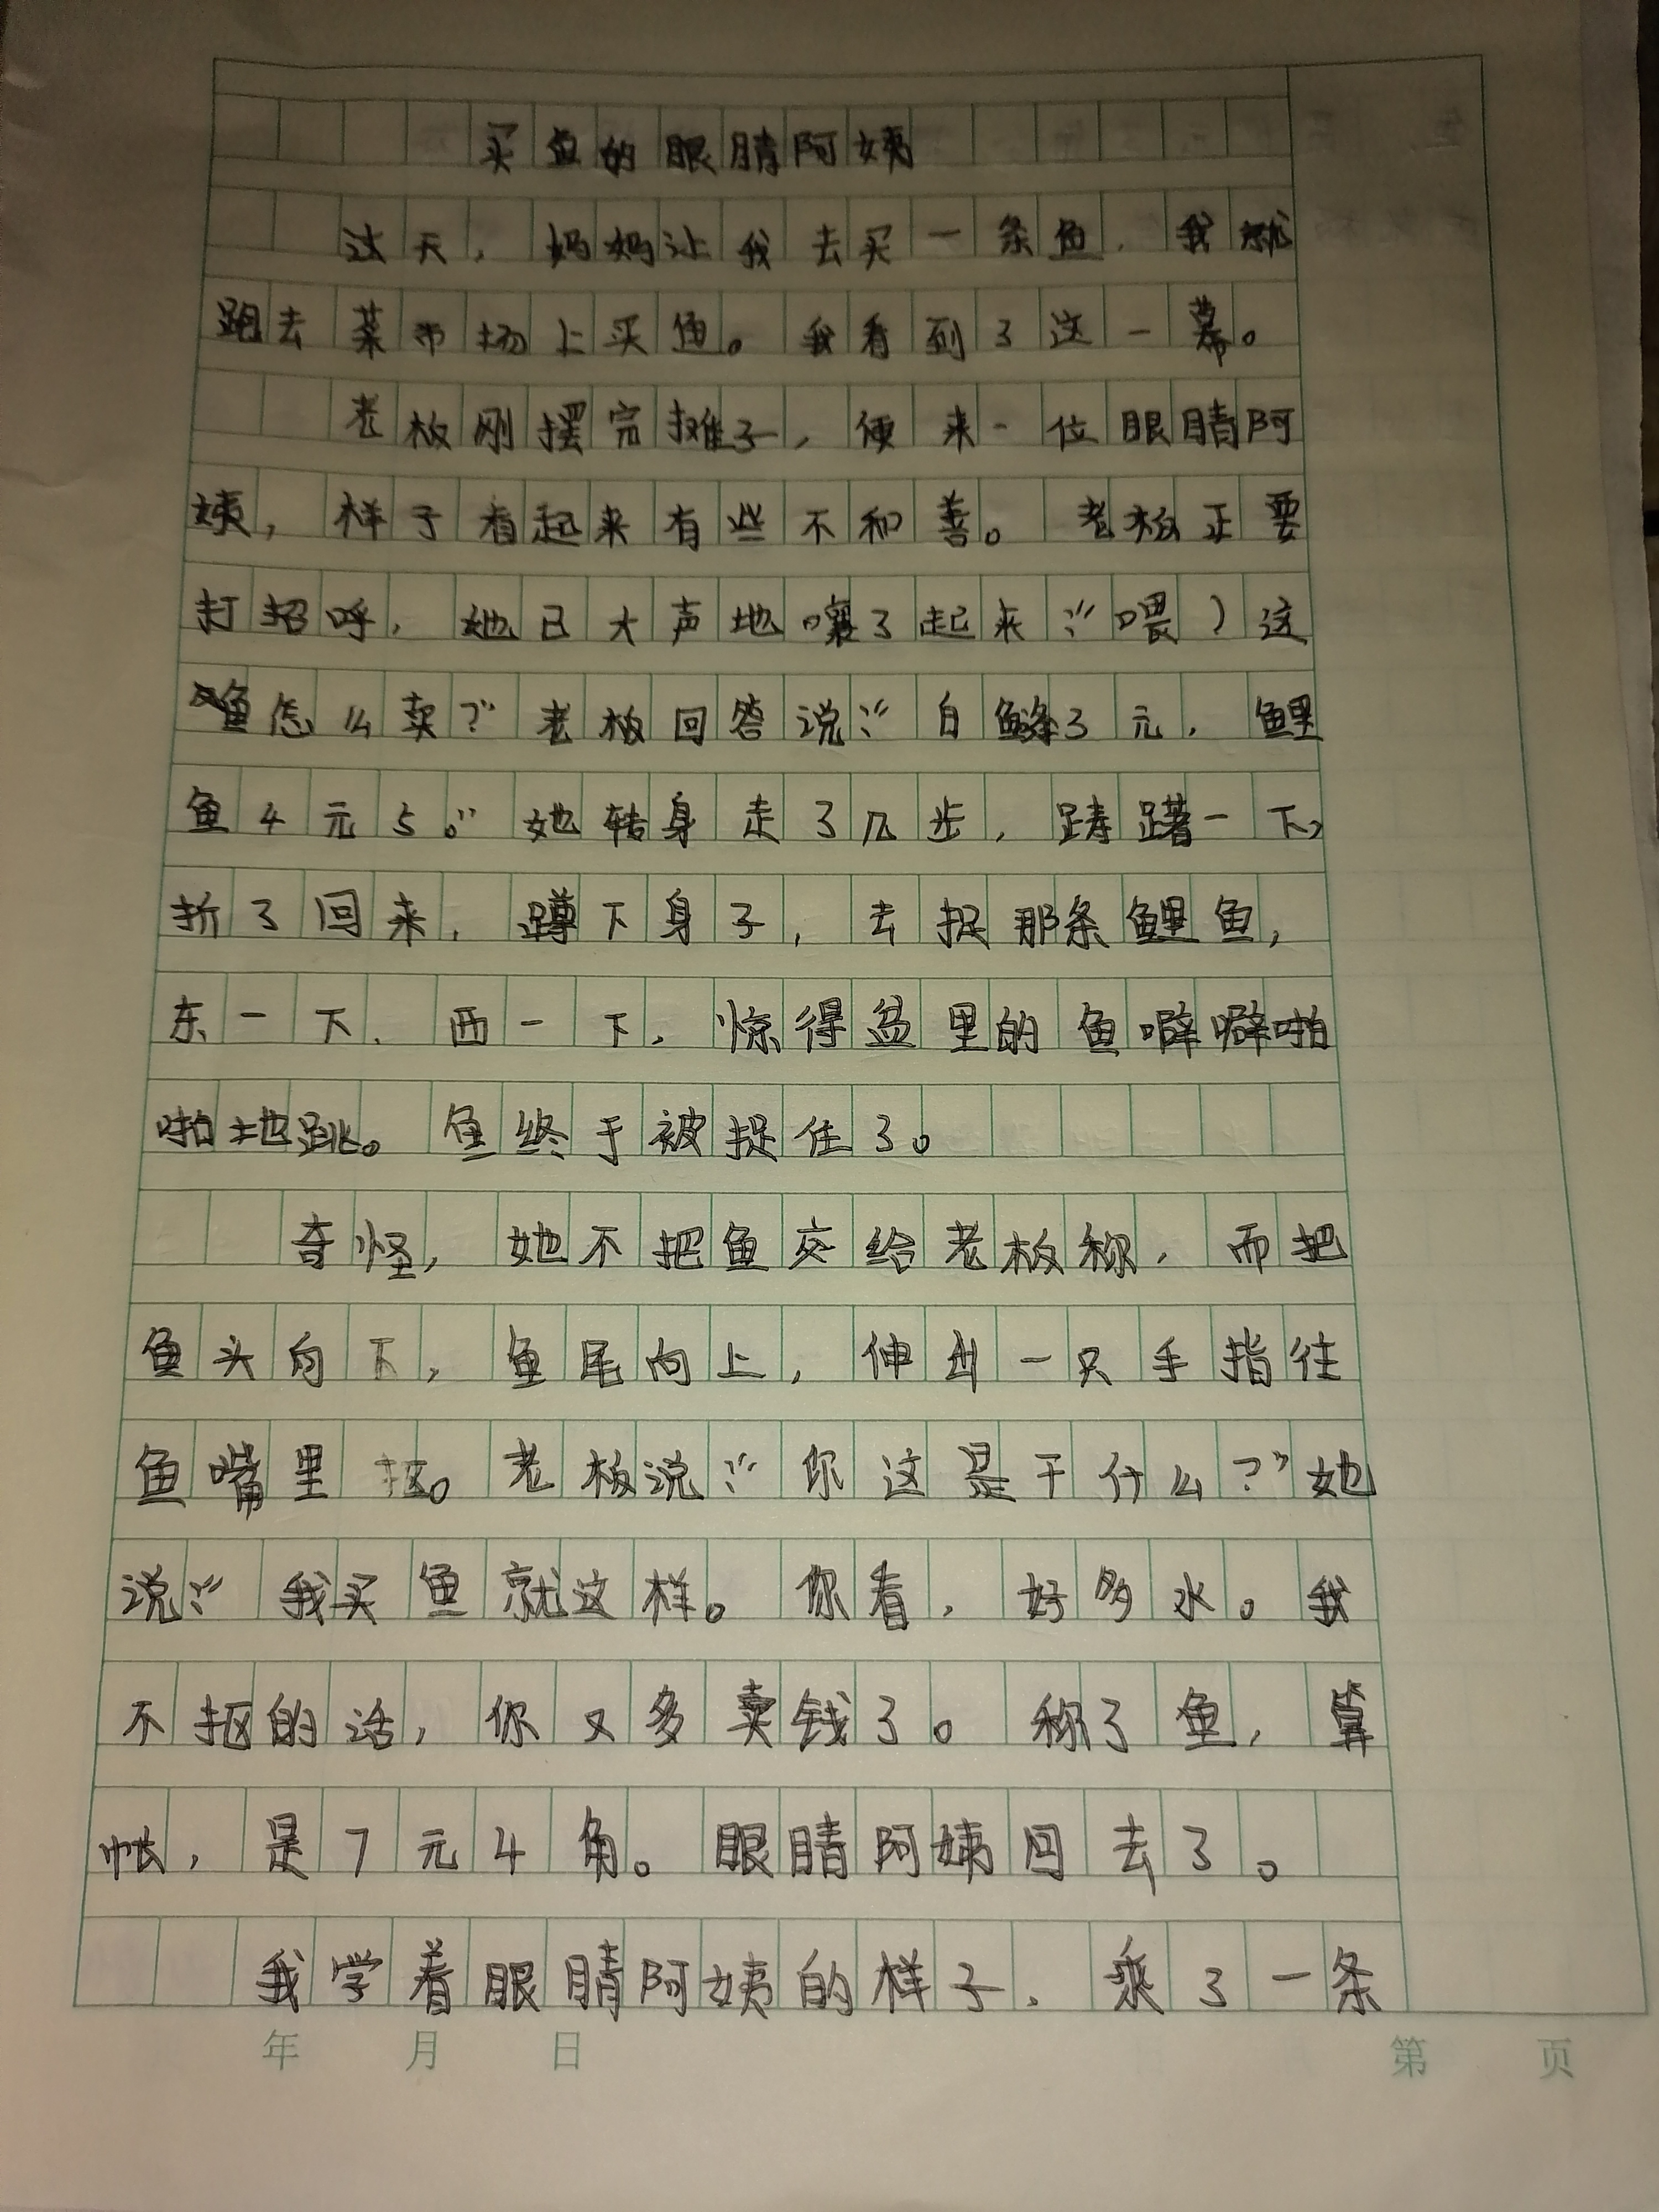 买鱼的眼睛阿姨
这天，妈妈让我去买一条鱼，我就
跑去菜市场上买鱼。我看到了这一幕。
老板刚摆完摊子，便来一位眼睛阿
姨，样子看起来有些不和善。老板正要
打招呼，她已大声地嚷了起来：“喂，这
鱼怎么卖？”老板回答说：“白鲢3元，鲤
鱼4元5。”她转身走了几步，踌躇一下，
折了回来，蹲下身子，去捉那条鲤鱼，
东一下，西一下，惊得盆里的鱼噼噼啪
啪地跳。鱼终于被捉住了。
奇怪，她不把鱼交给老板称，而把
鱼头向下，鱼尾向上，伸出一只手指往
鱼嘴里抠。老板说：“你这是干什么？”她
说：“我买鱼就这样。你看，好多水。我
不抠的话，你又多卖钱了。称了鱼，算
帐，是7元4角。眼睛阿姨回去了。
我学着眼睛阿姨的样子，买了一条
年 月 日
第 页